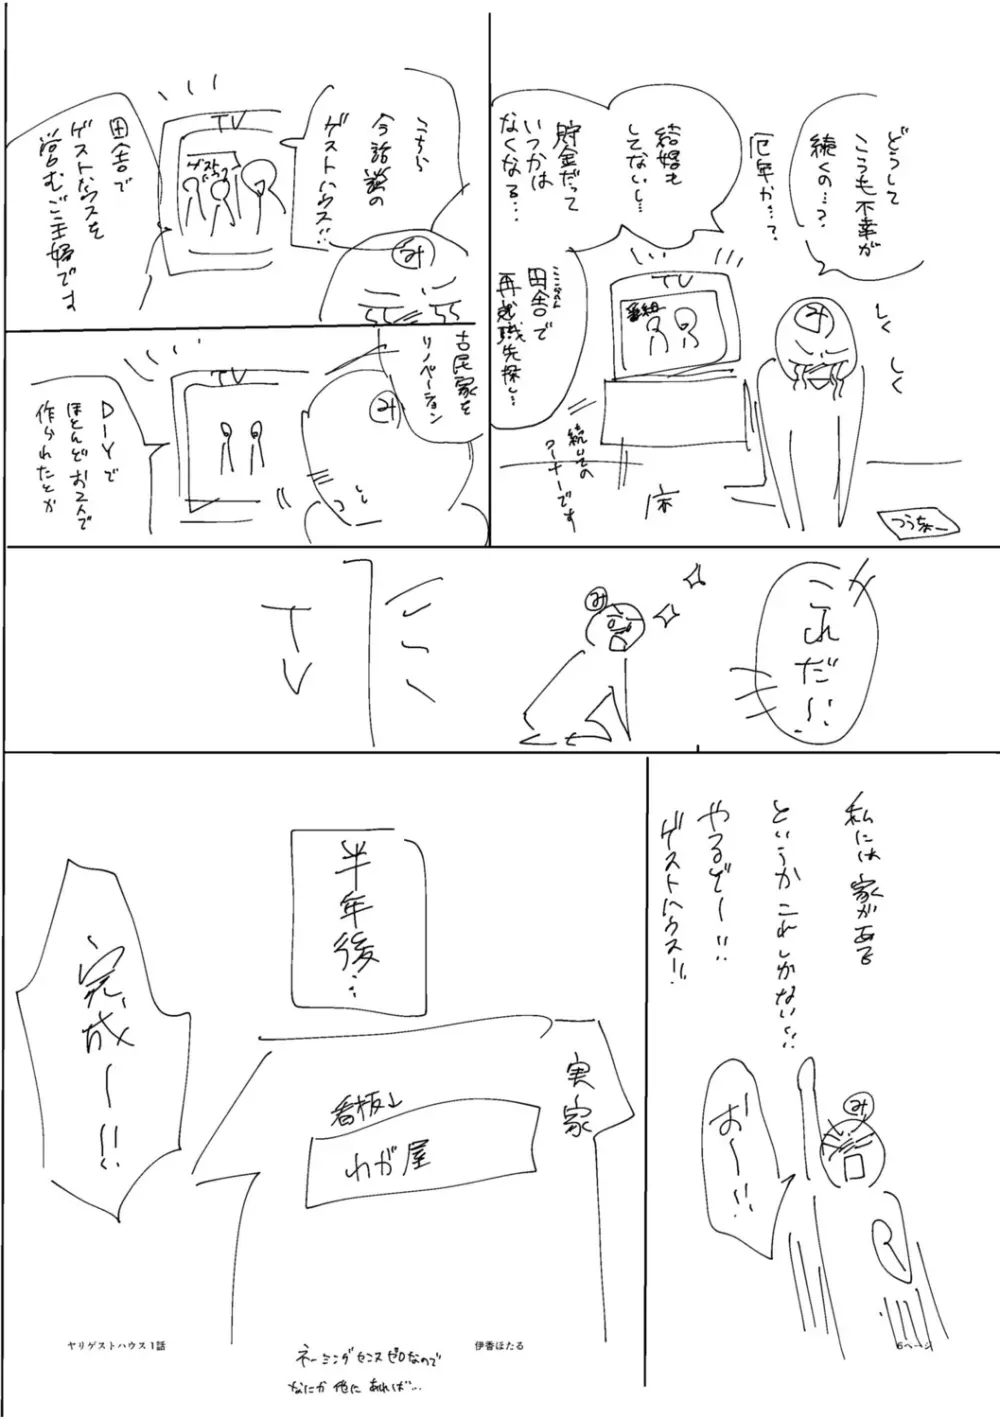 どうして
こうも不幸が
続くの…?
厄年か…?
結婚も
してないし…
貯金だって
いつかは
なくなる…
田舎で
再就職先探し…
み
しく
しく
TV
番組
続いての
コーナーです
床
つうちょー
こちら
今話題の
ゲストハウス!!
TV
ゲスト
ハウス
み
田舎で
ゲストハウスを
営むご主婦です
古民家を
リノベーション
み
TV
DIYで
ほとんどお2人で
作られたとか
これだ~!!
み
TV
私には家がある
というかこれしかない!!
やるぞー!!
ゲストハウス!!
み
お~!!
半年後…
実家
看板↓
わが屋
完成ー!!
ヤリゲストハウス1話
伊香ほたる
6ページ
ネーミングセンスゼロなので
なにか他にあれば…